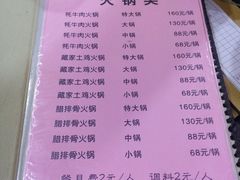 火锅类
牦牛肉火锅 特大锅 160元/锅
牦牛肉火锅 大锅 130元/锅
牦牛肉火锅 中锅 88元/锅
牦牛肉火锅 小锅 68元/锅
藏家土鸡火锅 特大锅 160元/锅
藏家土鸡火锅 大锅 130元/锅
藏家土鸡火锅 中锅 88元/锅
藏家土鸡火锅 小锅 68元/锅
腊排骨火锅 特大锅 160元/锅
腊排骨火锅 大锅 130元/锅
腊排骨火锅 中锅 88元/锅
腊排骨火锅 小锅 68元/锅
餐具费2元/人 调料2元/人